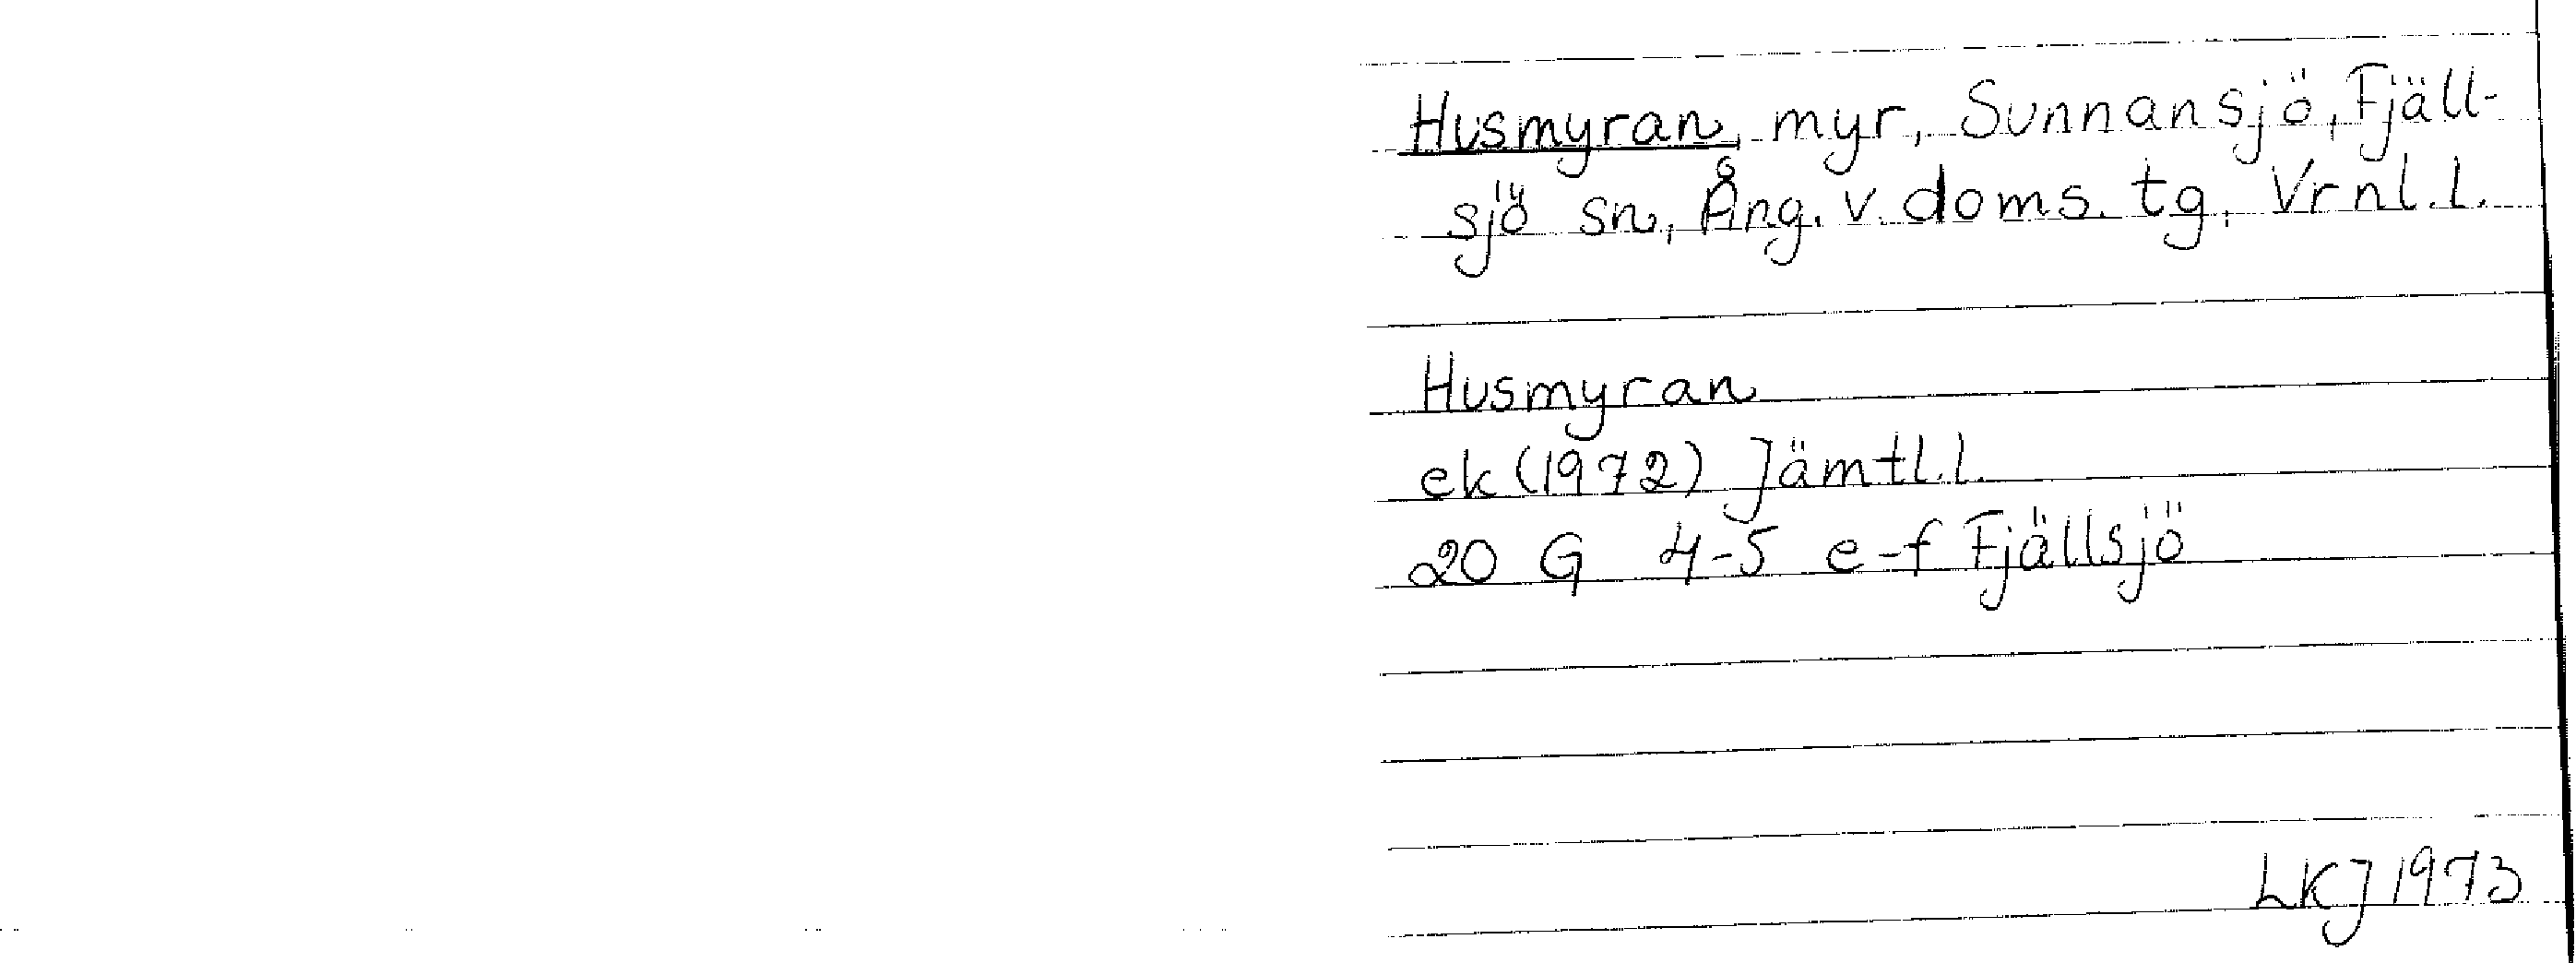 Husmyran, myr, Sunnansjö, Fjäll-
sjö sn, Ång. v. doms. tg, Vrnl. l.
Husmyran
ek (1972) Jämtl. l.
20 G 4-5 e-f Fjällsjö
LKJ 1973